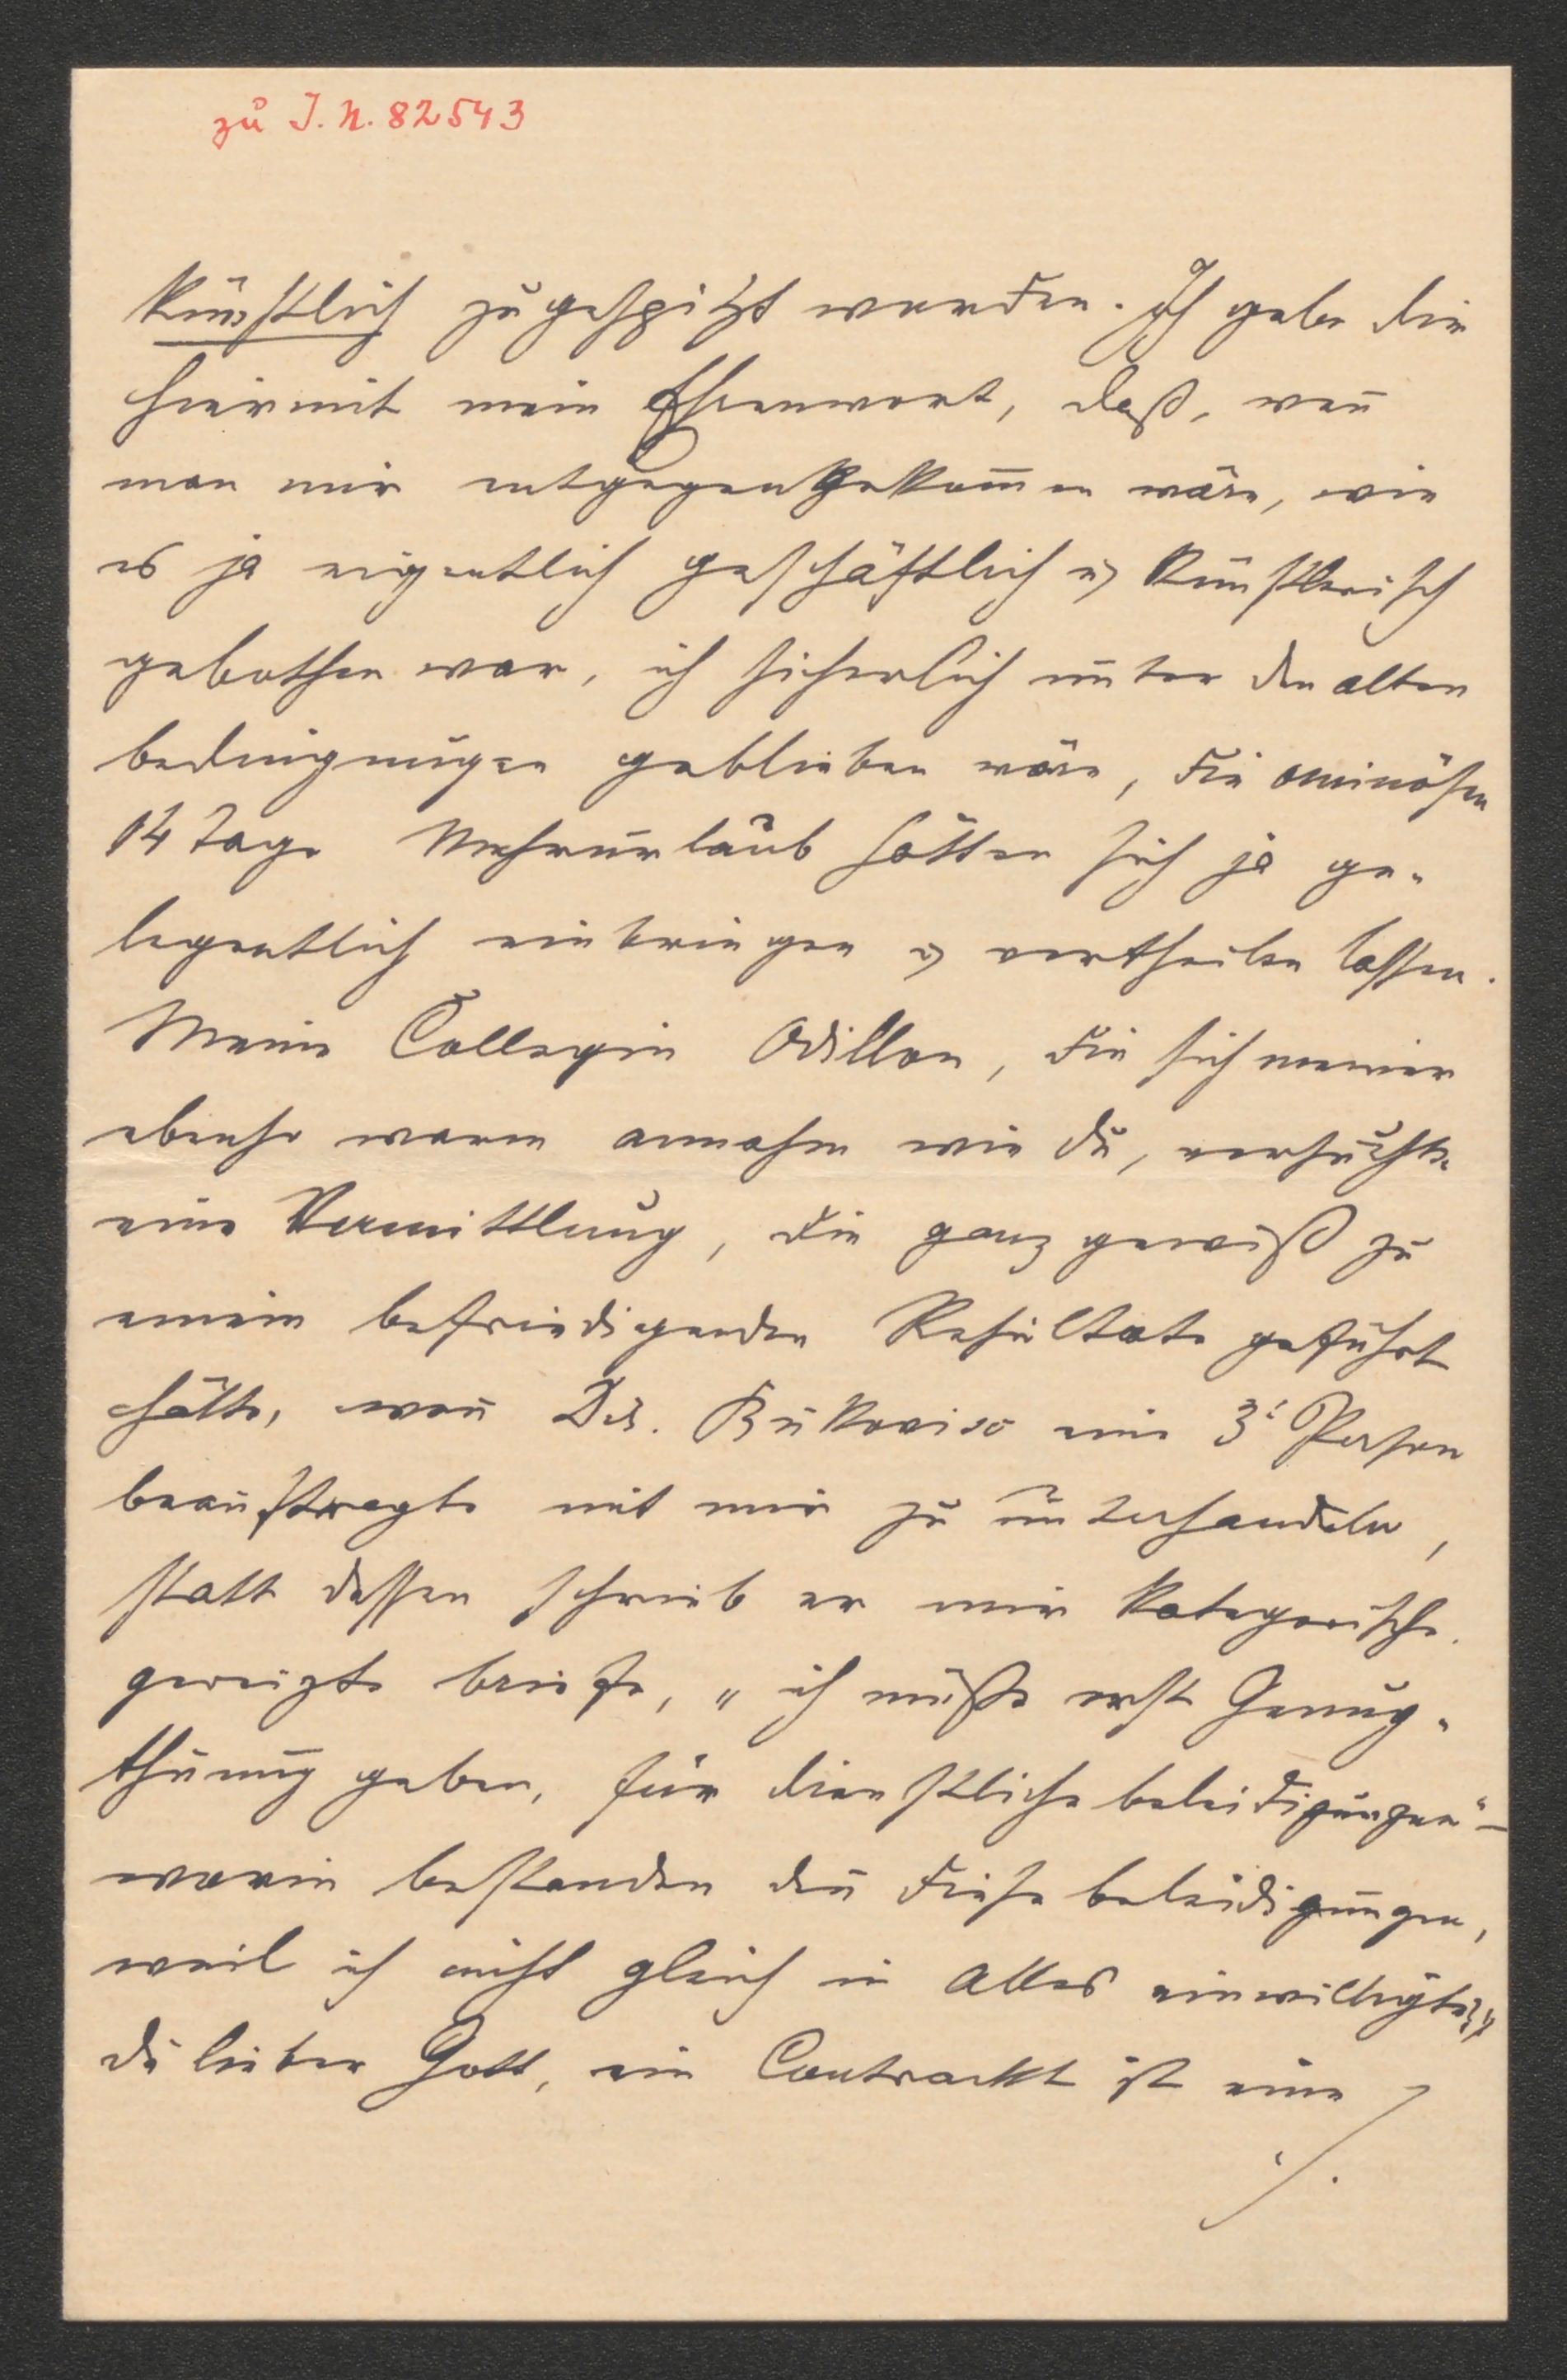 zu I. N. 82543
künstlich zugespitzt werden. Ich gebe dir
hiermit mein Ehrenwort, daß, wen̄
man mir entgegengekom̄en wäre, wie
es ja eigentlich geschäftlich u künstlerisch
gebothen war, ich sicherlich unter den alten
bedingungen geblieben wäre, die ominösen
14 Tage Mehrurlaub hätten sich ja ge-
legentlich einbringen u vertheilen lassen.
Meine Collegin Odillon, die sich meiner
ebenso warm annahm wie du, versuchte
eine Vermittlung, die ganz gewiß zu
einem befriedigenden Resultate geführt
hätte, wen̄ Dir. Bukovics eine 3te Person
beauftragte mit mir zu unterhandeln,
statt dessen schrieb er mir kategorische
gereizte briefe, „ich müße erst Genug-
thuung geben, für dienstliche beleidigungen" –
worin bestanden den̄ diese beleidigungen,
weil ich nicht gleich in Alles einwilligte?
du lieber Gott, ein Contrackt ist eine
./.